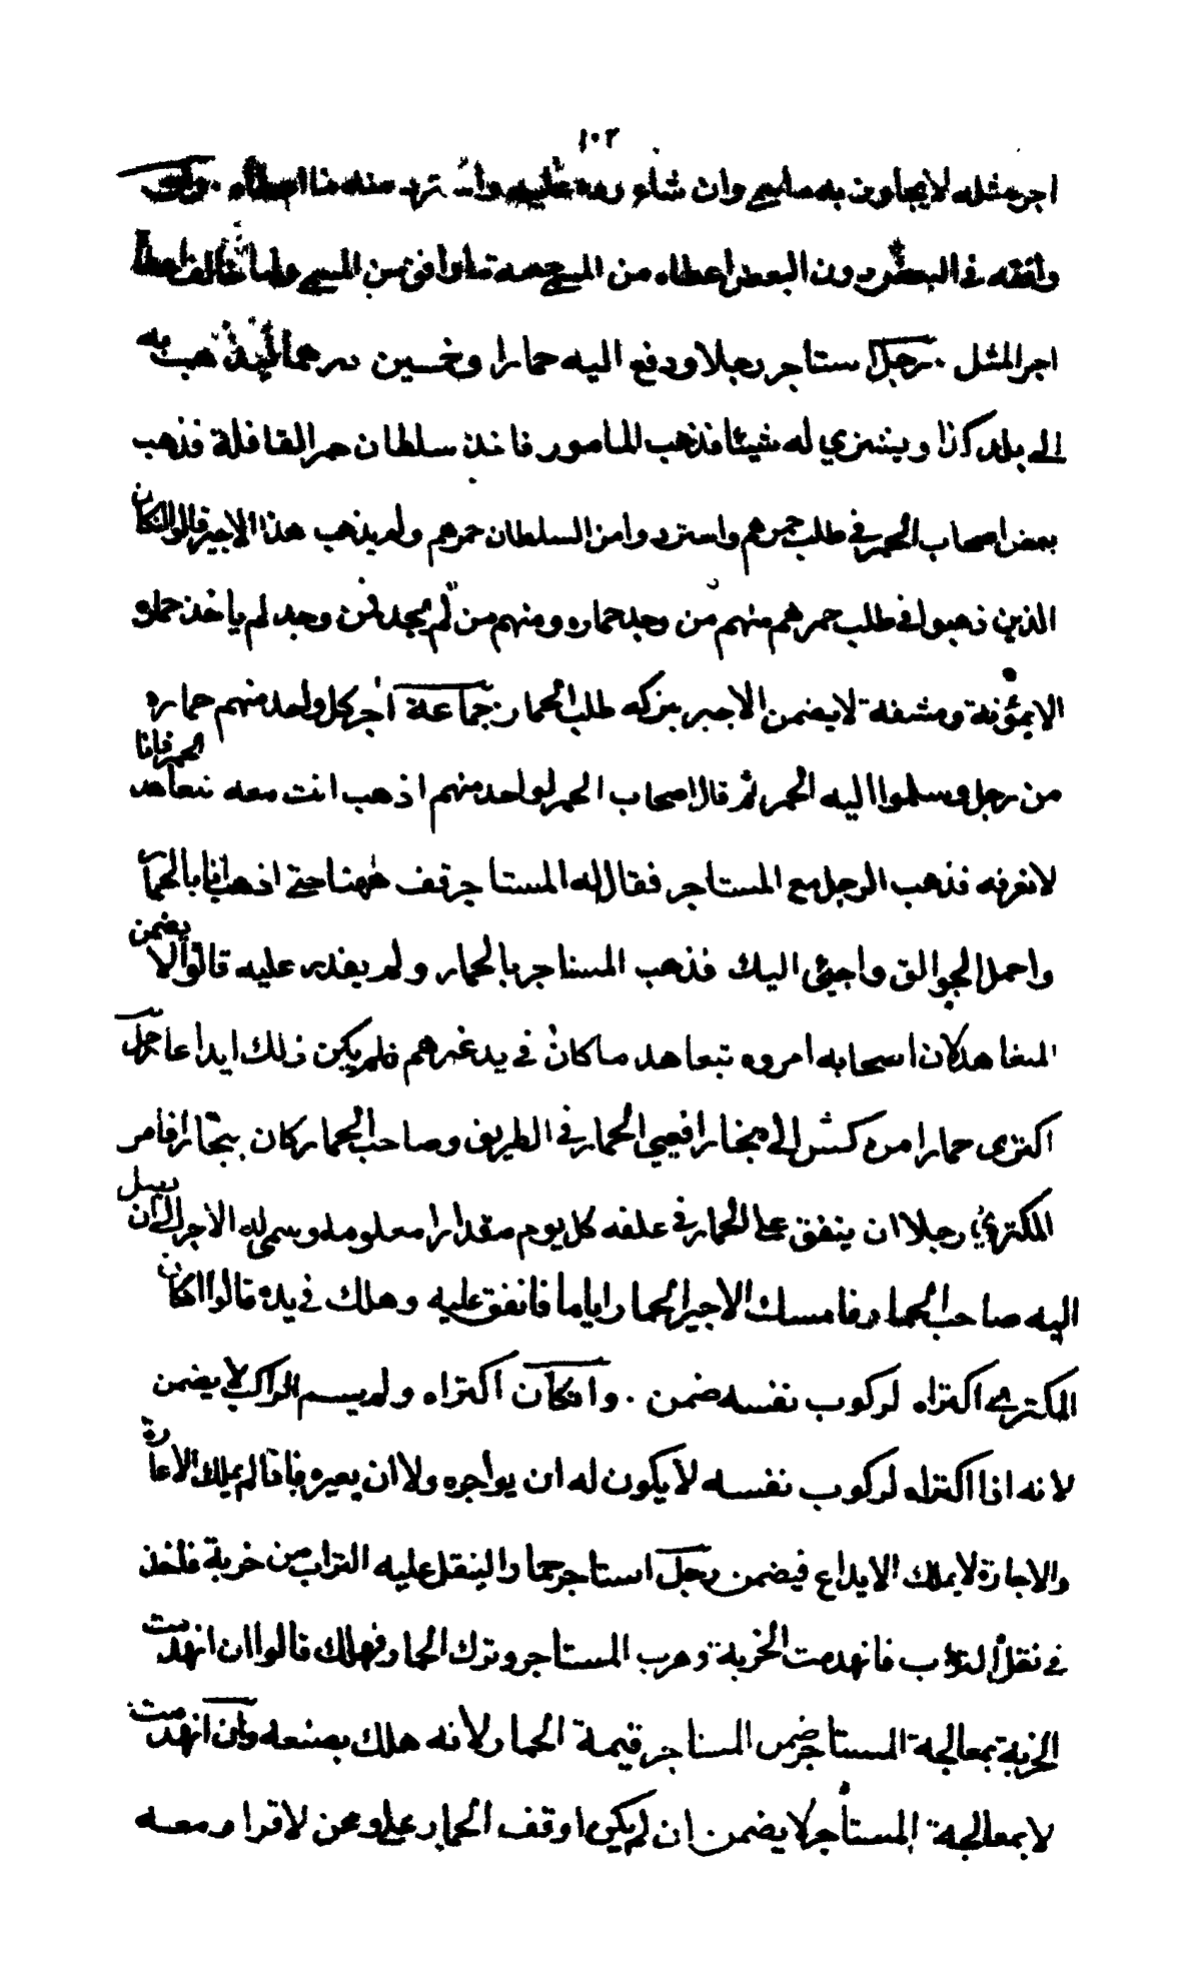 ١٠٢
اجر مثله لا يجاوز به ما سمي وان شاء رده عليه واسترد منه ما اعطاه . وان
وافقه في البعض دون البعض اعطاه من المسمي حصة ما وافق من المسمي وما خالف اعطاه
اجر المثل . رجل استاجر رجلا ودفع اليه حمارا وخمسين درهما ليذهب به
الى بلد كذا ويشتري له شيئا فذهب المامور فاخذ سلطان حمر القافلة فذهب
بعض اصحاب الحمر في طلب حمرهم واستردوا من السلطان حمرهم ولم يذهب هذا الاجير قالوا ان كان
الذين ذهبوا في طلب حمرهم منهم من وجد حماره ومنهم من لم يجد فمن وجد لم ياخذ حماره
الا بمؤنة ومشقة لا يضمن الاجير بتركه طلب الحمار . جماعة اجر كل واحد منهم حماره
من رجل وسلموا اليه الحمر ثم قال اصحاب الحمر لواحد منهم اذهب انت معه نتعاهد الحمر فانا
لا نعرفه فذهب الرجل مع المستاجر فقال له المستاجر قف ههنا حتى اذهب انا بالحمار
واحمل الجوالق واجيئ اليك فذهب المستاجر بالحمار ولم يقدر عليه قالوا لا يضمن
المتعاهد لان اصحابه امروه بتعاهد ما كان في يد غيرهم فلم يكن ذلك ايداعا رجل
اكترى حمارا من كش الى بخارا فعيي الحمار في الطريق وصاحب الحمار كان ببخارا فامر
المكتري رجلا ان ينفق على الحمار في علفه كل يوم مقدارا معلوما وسمى له الاجر الى ان يصل
اليه صاحب الحمار فامسك الاجير الحمار اياما فانفق عليه وهلك في يده قالوا ان كان
المكتري اكتراه لركوب نفسه ضمن . وان كان اكتراه ولم يسم الراكب لا يضمن
لانه اذا اكتراه لركوب نفسه لا يكون له ان يواجره ولا ان يعيره فاذا لم يملك الاعارة
والاجارة لا يملك الايداع فيضمن رجل استاجر حمارا لينقل عليه التراب من خربة فاخذ
في نقل التراب فانهدمت الخربة وهرب المستاجر وترك الحمار فهلك قالوا ان انهدمت
الخربة بمعالجة المستاجر ضمن المستاجر قيمة الحمار لانه هلك بصنعه وان انهدمت
لا بمعالجة المستأجر لا يضمن ان لم يكن اوقف الحمار على وهن لا قرار معه